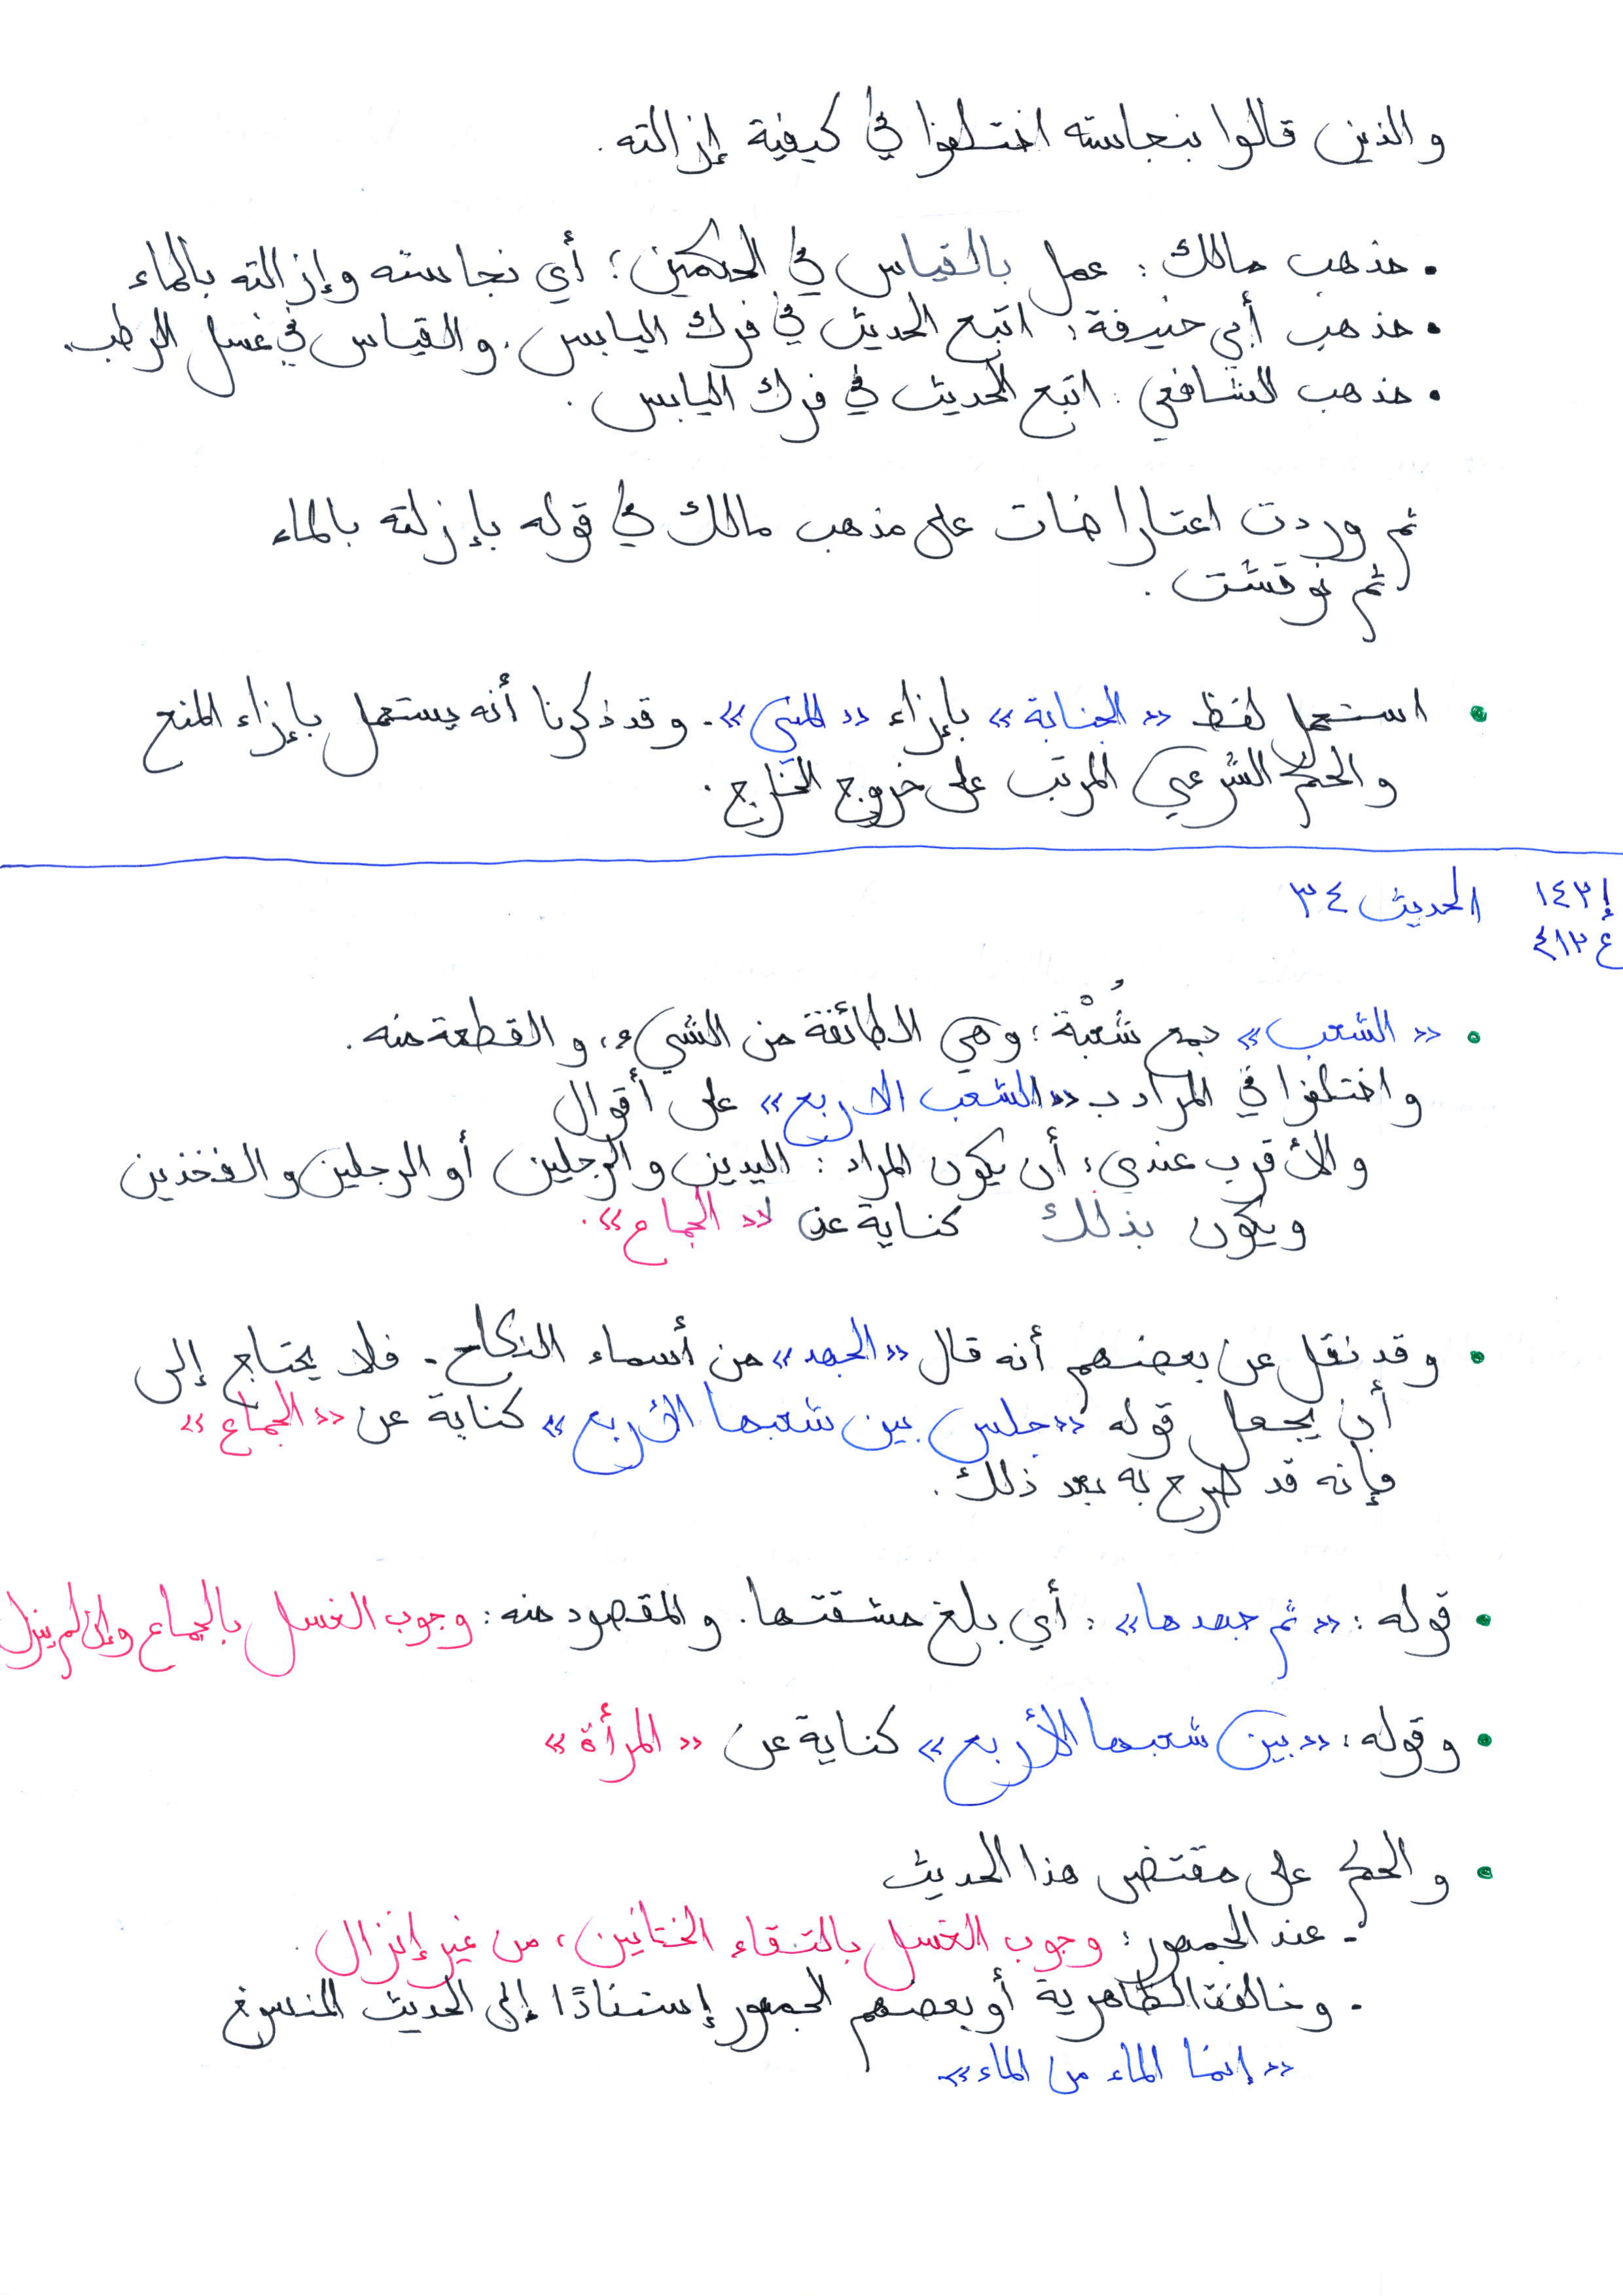 والذين قالوا بنجاسته اختلفوا في كيفية إزالته.
• مذهب مالك: عمل بالقياس في الحكمين؛ أي نجاسته وإزالته بالماء
• مذهب أبي حنيفة: اتبع الحديث في فرك اليابس. والقياس في غسل الرطب.
• مذهب الشافعي: اتبع الحديث في فرك اليابس.
ثم وردت اعتراضات على مذهب مالك في قوله بإزلته بالماء
ثم نوقشت.
• استعمل لفظ «الجنابة» بإزاء «المني». وقد ذكرنا أنه يستعمل بإزاء المنع
والحكم الشرعي المرتب على خروج الخارج.
إ١٤٣ الحديث ٣٤
ع٤١٣
• «الشعب» جمع شُعْبة؛ وهي الطائفة من الشيء، والقطعة منه.
واختلفوا في المراد ب«الشعب الاربع» على أقوال
والأقرب عندي؛ أن يكون المراد: اليدين والرجلين أو الرجلين والفخذين
ويكون بذلك كناية عن «الجماع».
• وقد نقل عن بعضهم أنه قال «الجهد» من أسماء النكاح. فلا يحتاج إلى
أن يجعل قوله «جلس بين شعبها الأربع» كناية عن «الجماع»
فإنه قد صرح به بعد ذلك.
• قوله: «ثم جهدها»: أي بلغ مشقتها. والمقصود منه: وجوب الغسل بالجماع وإن لم ينزل
• وقوله: «بين شعبها الأربع» كناية عن «المرأة»
• والحكم على مقتضى هذا الحديث
- عند الجمهور: وجوب الغسل بالتقاء الختانين، من غير إنزال.
- وخالفت الظاهرية أو بعضهم الجمهور إستنادًا إلى الحديث المنسوخ
«إنما الماء من الماء»